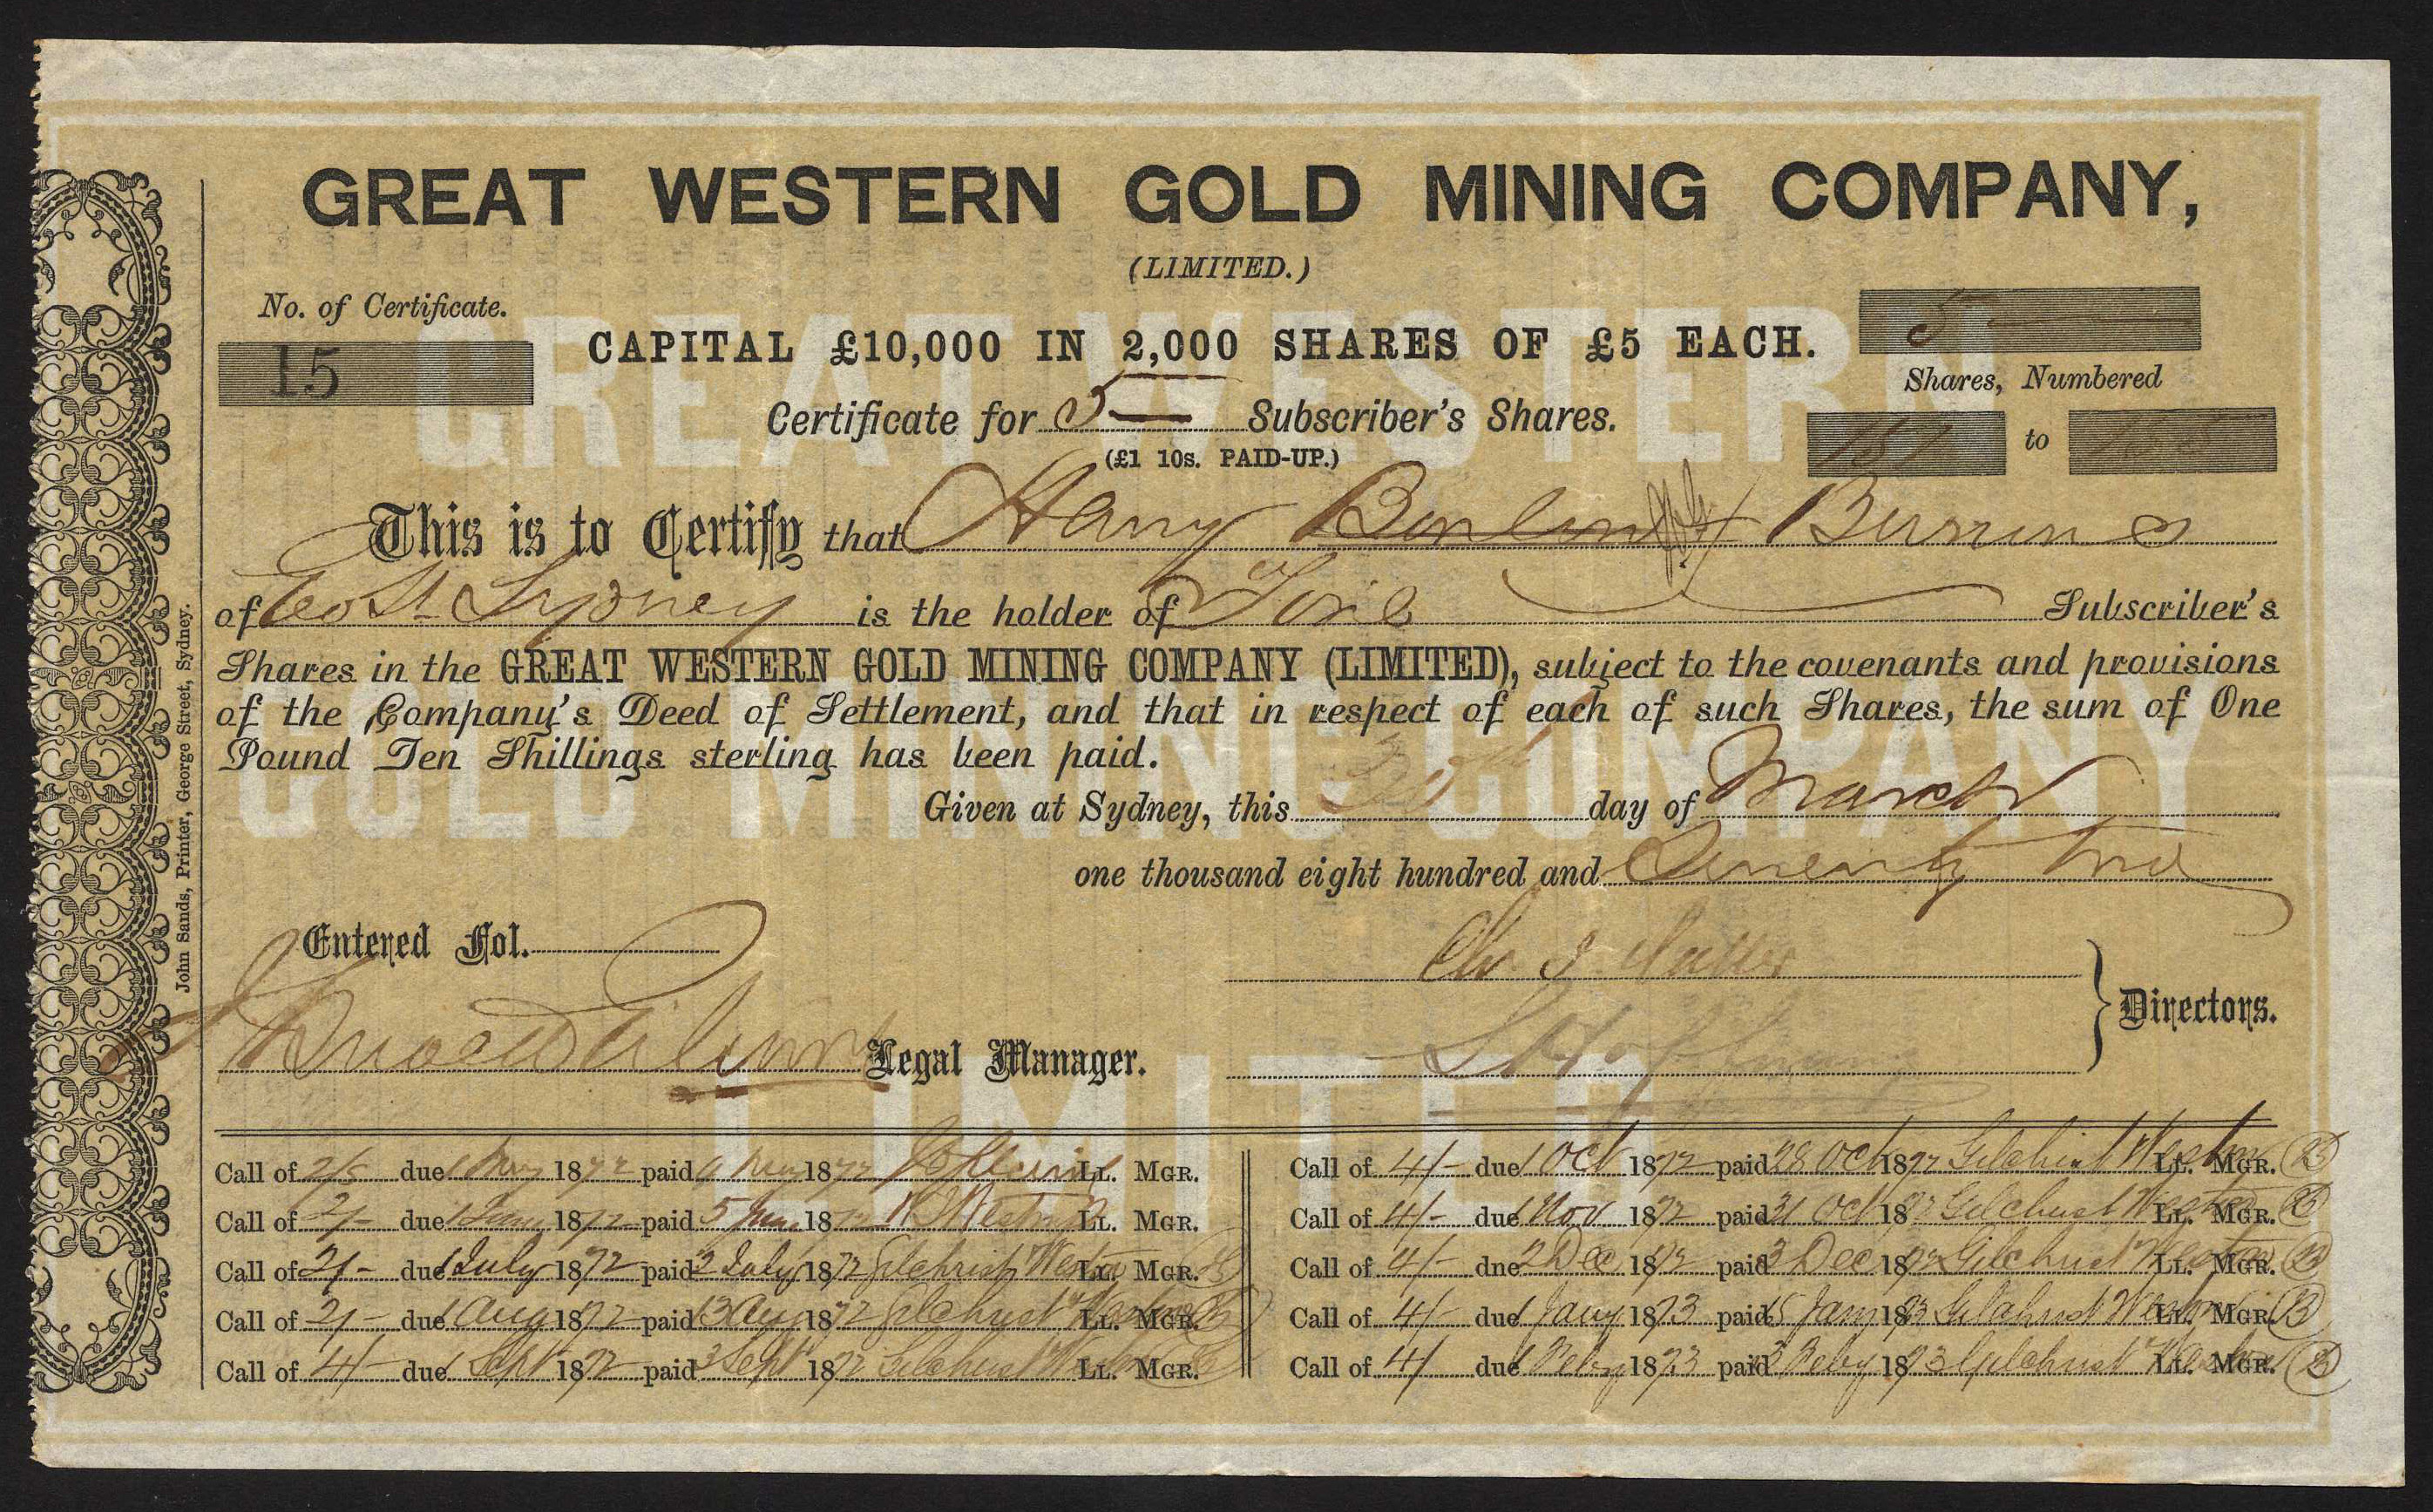 GREAT WESTERN GOLD MINING COMPANY,
(LIMITED.)
No. of Certificate.
15
CAPITAL £10,000 IN 2,000 SHARES OF £5 EACH.
5
Shares, Numbered
151 to 155
Certificate for 5 Subscriber's Shares.
(£1 10s. PAID-UP.)
This is to Certify that Harry Burrows
of Sydney is the holder of Five Subscriber's
Shares in the GREAT WESTERN GOLD MINING COMPANY (LIMITED), subject to the covenants and provisions
of the Company's Deed of Settlement, and that in respect of each of such Shares, the sum of One
Pound Ten Shillings sterling has been paid.
Given at Sydney, this day of March
one thousand eight hundred and Seventy two
Entered Fol.
Legal Manager.
Directors.
Call of 2/- due 1 May 1872 paid May 1872 LL. MGR.
Call of 2/- due 1 June 1872 paid 5 June 1872 LL. MGR.
Call of 2/- due 1 July 1872 paid 2 July 1872 Gilchrist Weston LL. MGR.
Call of 2/- due 1 Aug 1872 paid 13 Aug 1872 Gilchrist Weston LL. MGR.
Call of 4/- due 1 Sept 1872 paid 3 Sept 1872 Gilchrist Weston LL. MGR.
Call of 4/- due 1 Oct 1872 paid 28 Oct 1872 Gilchrist Weston LL. MGR.
Call of 4/- due 1 Nov 1872 paid 31 Oct 1872 Gilchrist Weston LL. MGR.
Call of 4/- dne 2 Dec 1872 paid 3 Dec 1872 Gilchrist Weston LL. MGR.
Call of 4/- due 1 Jany 1873 paid 15 Jany 1873 Gilchrist Weston LL. MGR.
Call of 4/- due 1 Feby 1873 paid Feby 1873 Gilchrist Weston LL. MGR.
John Sands, Printer, George Street, Sydney.
GREAT WESTERN
GOLD MINING COMPANY
LIMITED